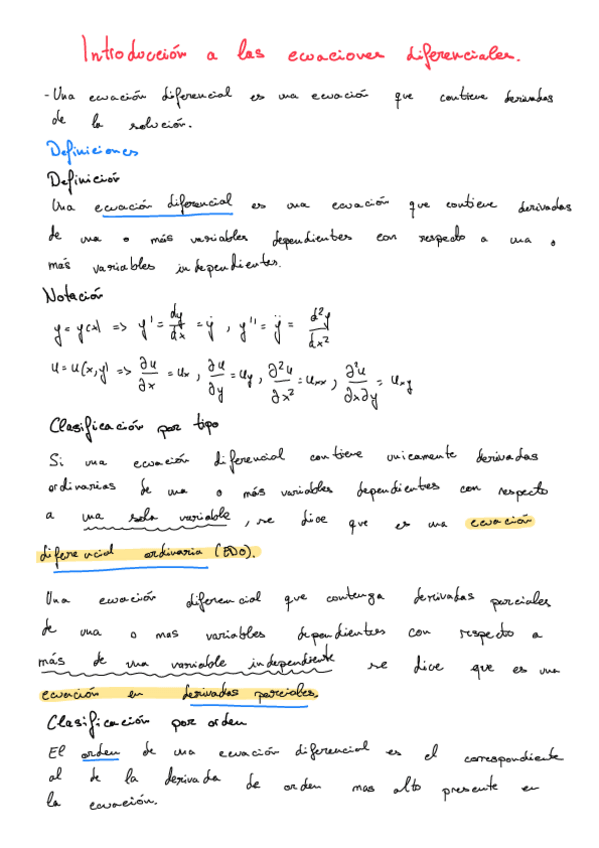 Introducción a las ecuaciones diferenciales.
- Una ecuación diferencial es una ecuación que contiene derivadas
de la solución.
Definiciones
Definición
Una ecuación diferencial es una ecuación que contiene derivadas
de una o más variables dependientes con respecto a una o
más variables independientes.
Notación
y = y(x) => y' = dy/dx = ẏ , y'' = ÿ = d²y/dx²
u = u(x,y) => ∂u/∂x = ux , ∂u/∂y = uy , ∂²u/∂x² = uxx , ∂²u/∂x∂y = uxy
Clasificación por tipo
Si una ecuación diferencial contiene unicamente derivadas
ordinarias de una o más variables dependientes con respecto
a una sola variable, se dice que es una ecuación
diferencial ordinaria (EDO).
Una ecuación diferencial que contenga derivadas parciales
de una o mas variables dependientes con respecto a
más de una variable independiente se dice que es una
ecuación en derivadas parciales.
Clasificación por orden
El orden de una ecuación diferencial es el correspondiente
al de la derivada de orden mas alto presente en
la ecuación.